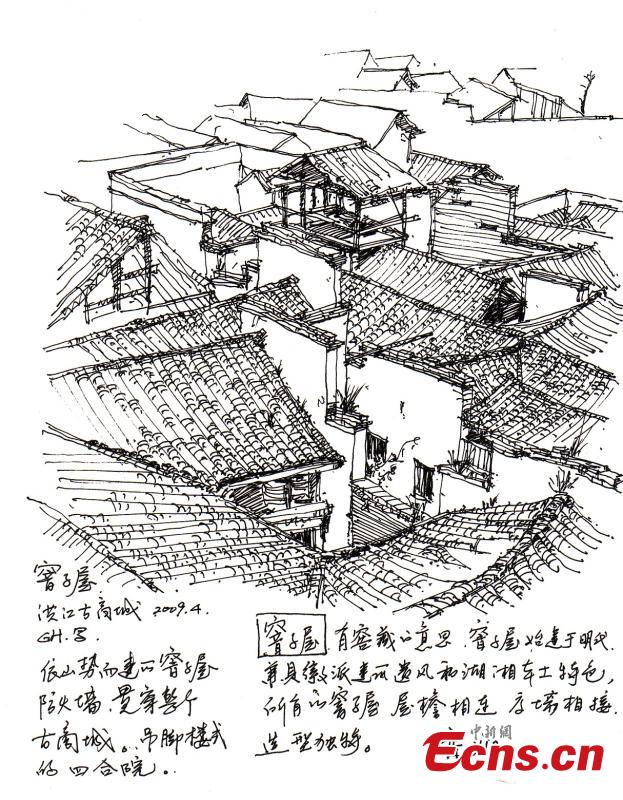 窨子屋
洪江古商城 2009.4.
GH.写
依山势而建的窨子屋
防火墙、贯穿整个
古商城。吊脚楼式
的四合院。
窨子屋 有窖藏的意思. 窨子屋始建于明代.
兼具徽派建筑遗风和湖湘本土特色,
所有的窨子屋 屋檐相连 高墙相接.
造型独特。
中新網
Ecns.cn